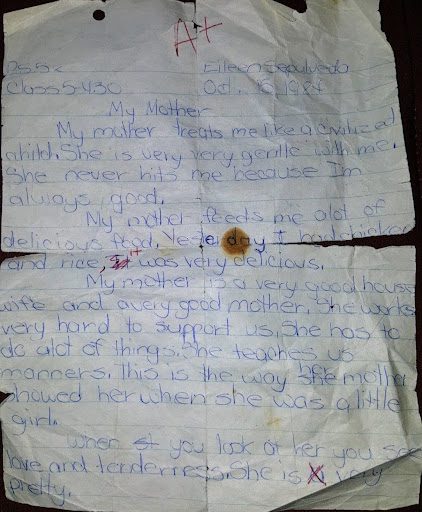 A+
Eileen Sepulveda
Class 5-430 Oct. 1984
My Mother
My mother treats me like a civilized
child. She is very very gentle with me.
She never hits me because Im
always good.
My mother feeds me alot of
delicious food. Yesterday I had chicken
and rice, It was very delicious.
My mother is a very good house
wife and a very good mother. She works
very hard to support us. She has to
do alot of things. She teaches us
manners. This is the way her mother
showed her when she was a little
girl.
When you look at her you see
love and tenderness. She is very
pretty.